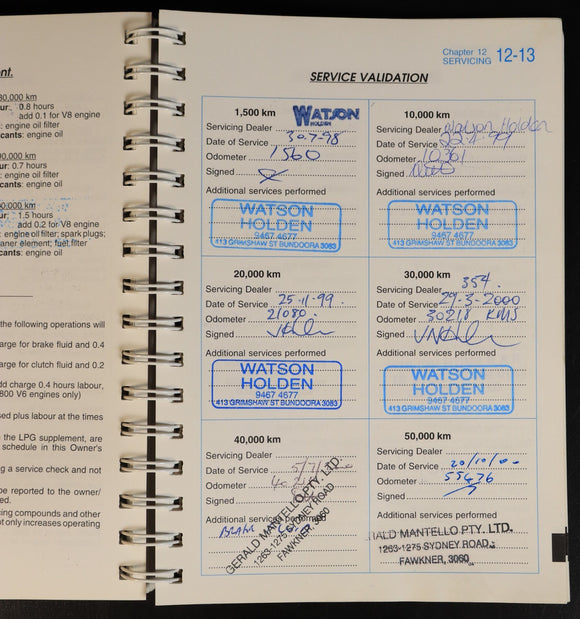 nt.
80,000 km
ur: 0.8 hours
add 0.1 for V8 engine
: engine oil filter
cants: engine oil
90,000 km
ur: 0.7 hours
: engine oil filter
cants: engine oil
00,000 km
ur: 1.5 hours
add 0.2 for V8 engine
: engine oil filter; spark plugs;
aner element; fuel filter
cants: engine oil
the following operations will
arge for brake fluid and 0.4
arge for clutch fluid and 0.2
dd charge 0.4 hours labour,
800 V6 engines only)
sed plus labour at the times
the LPG supplement, are
schedule in this Owner's
g a service check and not
be reported to the owner/
ed.
ompounds and other
ot only increases operating
Chapter 12
SERVICING 12-13
SERVICE VALIDATION
1,500 km WATSON
HOLDEN
Servicing Dealer
Date of Service 30.7.98
Odometer 1560
Signed
Additional services performed
WATSON
HOLDEN
9467 4677
413 GRIMSHAW ST BUNDOORA 3083
10,000 km
Servicing Dealer Watson Holden
Date of Service
Odometer 10361
Signed
Additional services performed
WATSON
HOLDEN
9467 4677
413 GRIMSHAW ST BUNDOORA 3083
20,000 km
Servicing Dealer
Date of Service 25.11.99.
Odometer 21080
Signed
Additional services performed
WATSON
HOLDEN
9467 4677
413 GRIMSHAW ST BUNDOORA 3083
30,000 km
Servicing Dealer 354.
Date of Service 29-3-2000
Odometer 30218 KMS
Signed
Additional services performed
WATSON
HOLDEN
9467 4677
413 GRIMSHAW ST BUNDOORA 3083
40,000 km
Servicing Dealer
Date of Service
Odometer
Signed
Additional services performed
GERALD MANTELLO PTY. LTD.
1263-1275 SYDNEY ROAD
FAWKNER, 3060
50,000 km
Servicing Dealer
Date of Service 20/10/00
Odometer 55436
Signed
Additional services performed
RALD MANTELLO PTY. LTD.
1263-1275 SYDNEY ROAD,
FAWKNER, 3060